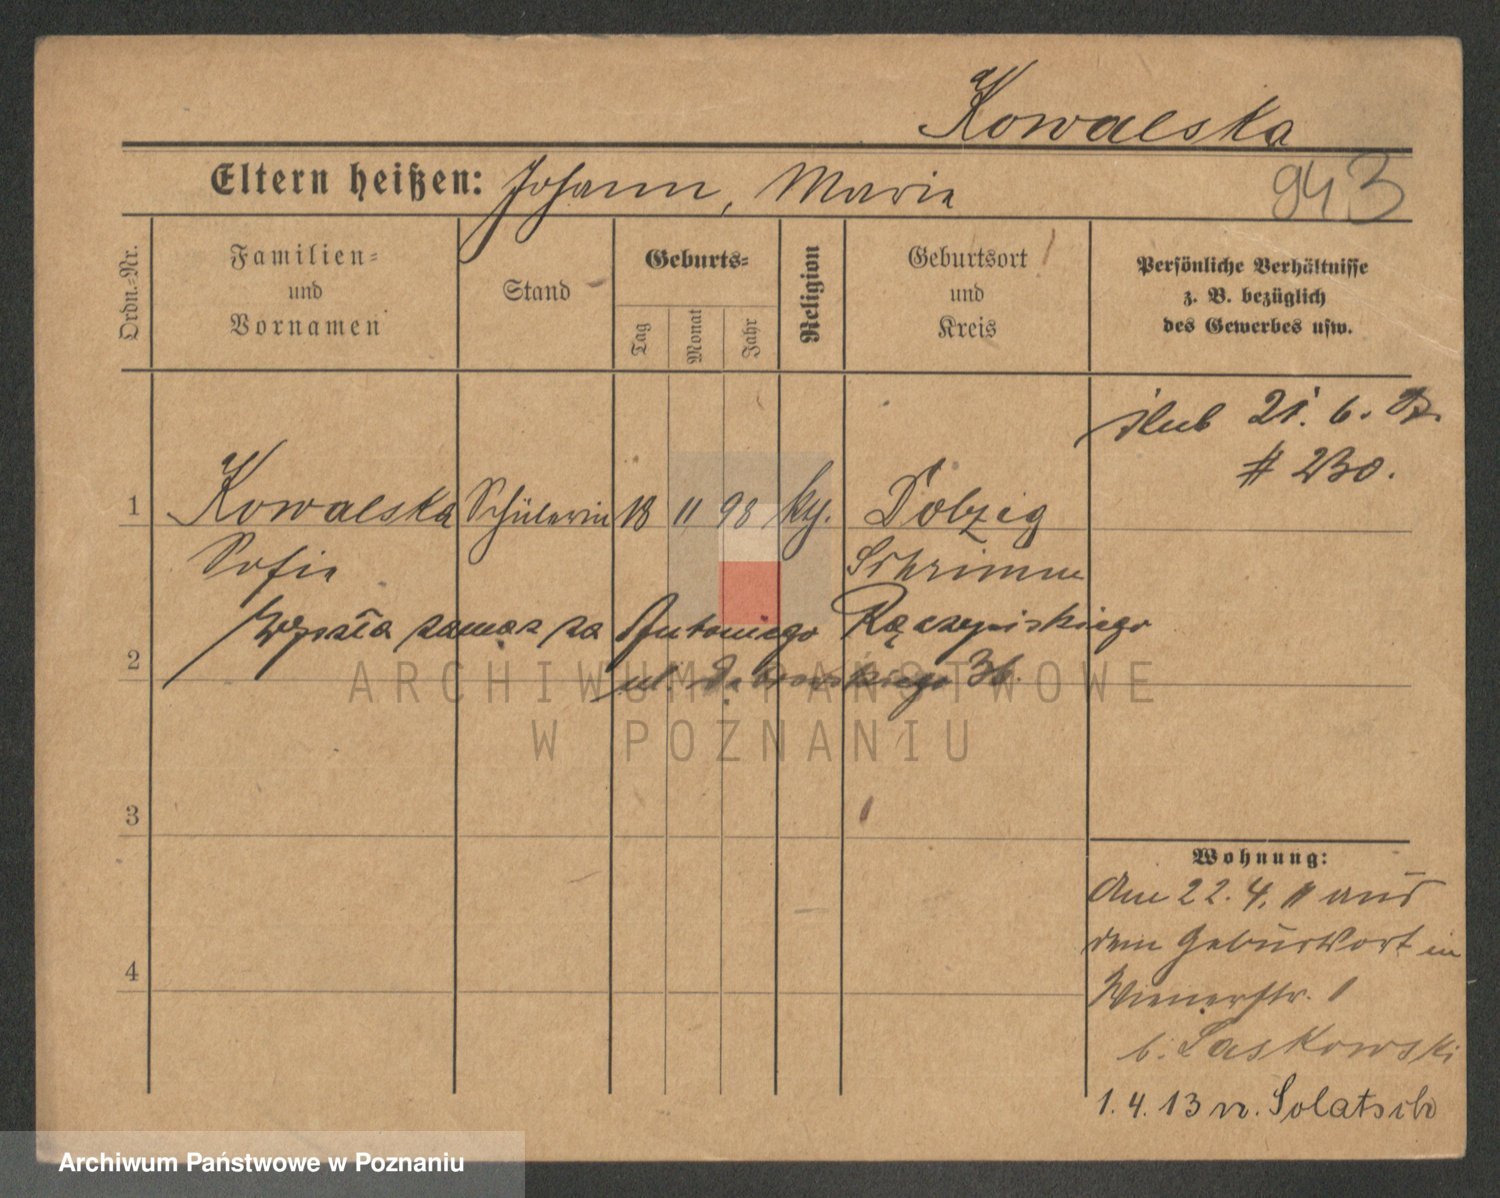 Kowalska
Eltern heißen: Johann, Marie
943
Ordn.-Nr.
Familien-
und
Vornamen
Stand
Geburts-
Tag
Monat
Jahr
Religion
Geburtsort
und
Kreis
Persönliche Verhältnisse
z. B. bezüglich
des Gewerbes usw.
21. 6.
# 230.
1 Kowalska Schülerin 18 11 98 Dolzig
Sofie Schrimm
wyszła zamąz za Antoniego Raczyńskiego
2
ul. Dąbrowskiego 36.
ARCHIWUM PAŃSTWOWE
W POZNANIU
3
Wohnung:
Am 22. 4. 11 aus
dem Geburtsort in
4
Wienerstr. 1
b. Laskowski
1. 4. 13 n. Solatsch
Archiwum Państwowe w Poznaniu